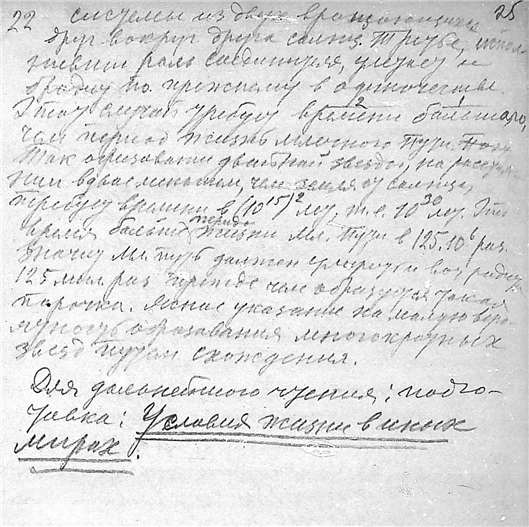 22 системы из двух вращающихся 25
друг вокруг друга солнц. Третье,
роль соединителя, уходит и
бродит по прежнему в одиночестве.
Этот случай требует времени больше,
чем период жизни млечного Пути.
Так образование двойной звезды, на
нии вдвое меньшем, чем земля от солнца,
требует времени в (10¹⁵)² лет, т.е. 10³⁰ лет. Это
время больше периода жизни Мл. Пути в 125.10⁶ раз.
Значит Мл. путь должен умереть и
125 мил. раз прежде чем образуется такая
парочка. Ясное указание на малую веро-
ятность образования многократных
звезд путем схождения.
Для дальнейшего чтения: подго-
товка: Условия жизни в иных
мирах.